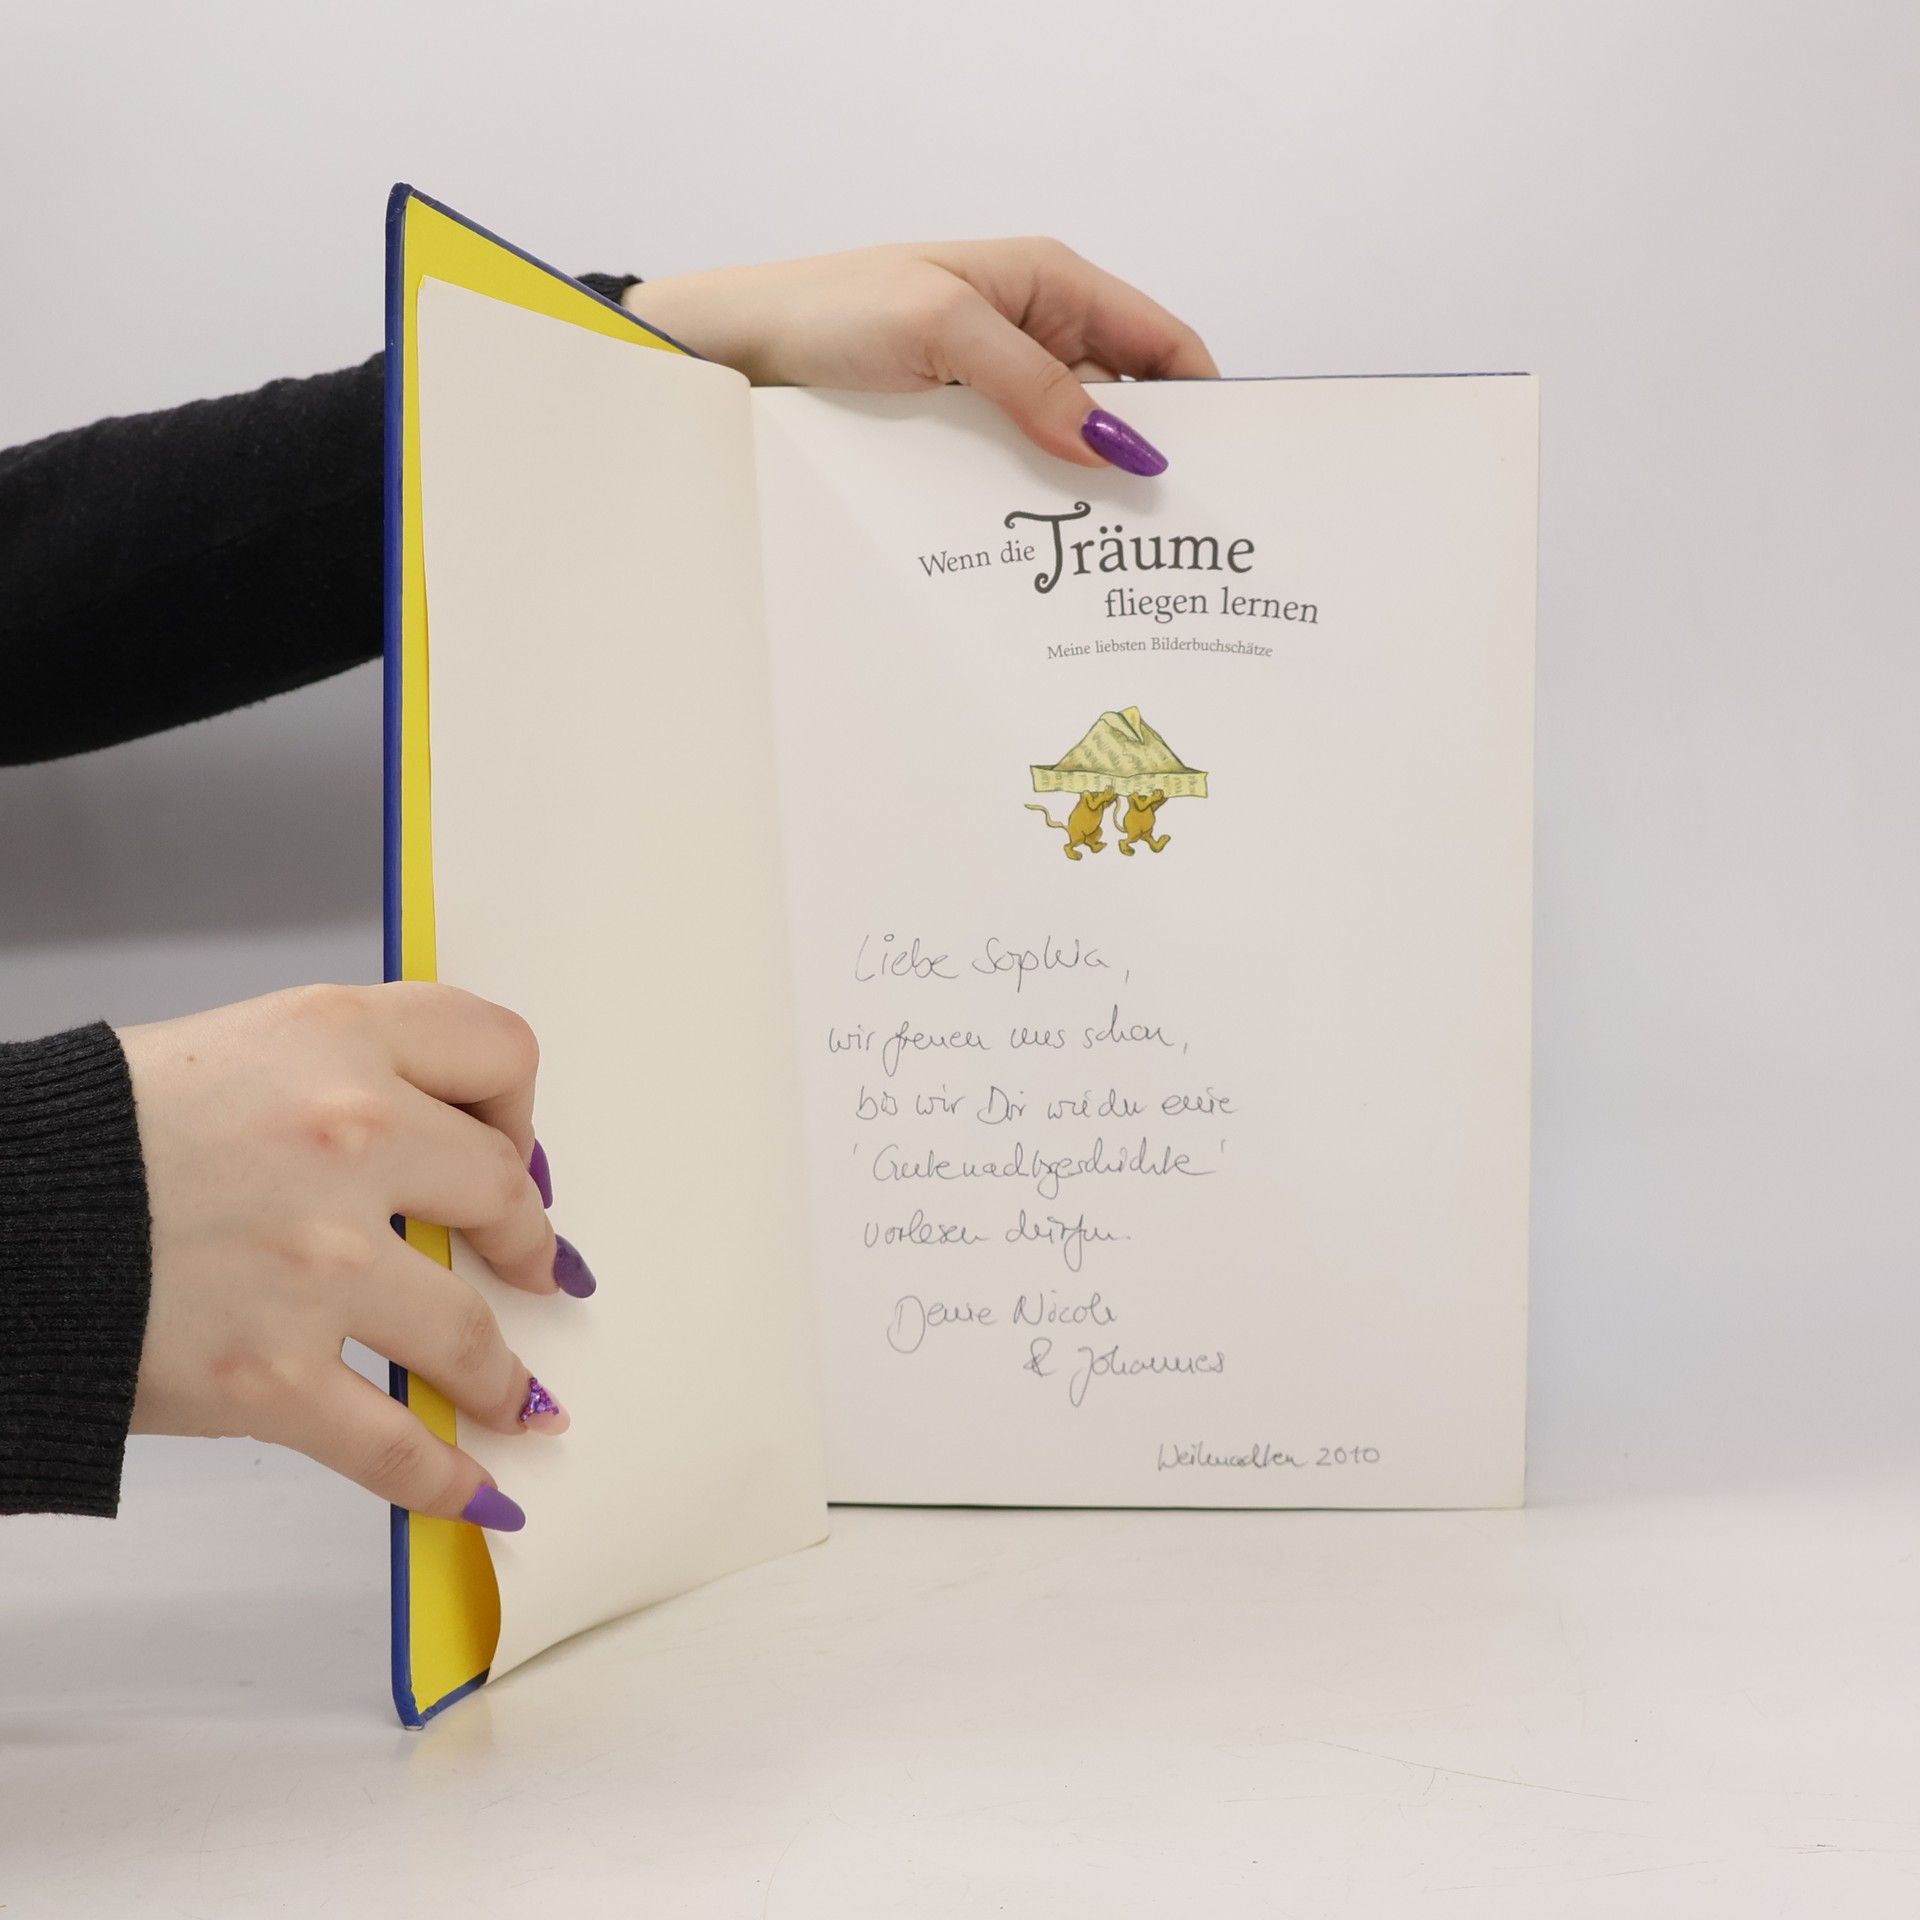 Wenn die Träume
fliegen lernen
Meine liebsten Bilderbuchschätze
Liebe Sophia,
wir freuen uns schon,
bis wir Dir wieder eine
'Gutenachtgeschichte'
vorlesen dürfen.
Deine Nicole
& Johannes
Weihnachten 2010